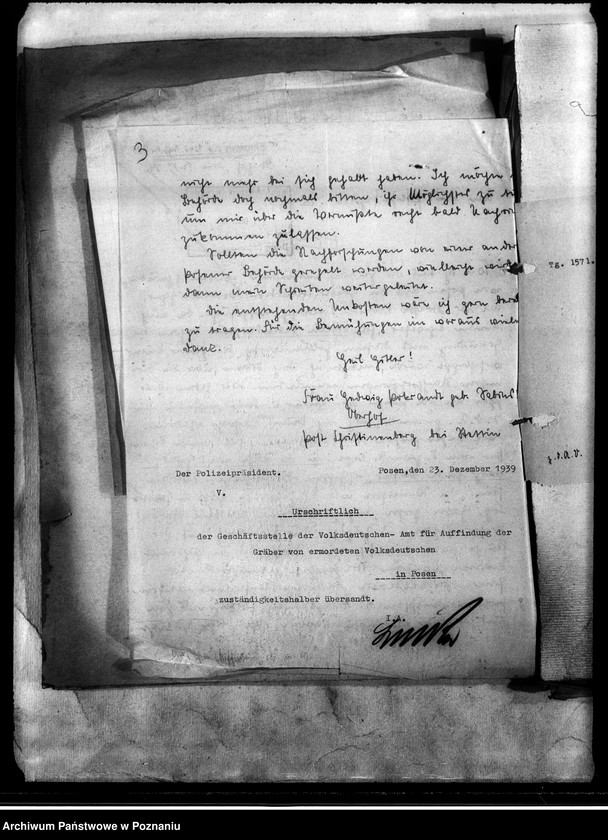 3
nicht mehr bei sich gehabt haben. Ich möchte
Behörde doch nochmals bitten, ihr Möglichstes zu
um mir über die Vermißte recht bald
zukommen zulassen.
Sollten die Nachforschungen von einer
Posener Behörde geregelt werden, vielleicht wird
dann mein Schreiben weitergeleitet.
Die entstehenden Unkosten wäre ich gern
zu tragen. Für die Bemühungen im voraus
dank.
Heil Hitler!
Frau Hedwig geb.
Oberhof
Post Christinenberg bei Stettin
Tg. 1571.
z.d.A.V.
Der Polizeipräsident.
Posen,den 23. Dezember 1939
V.
Urschriftlich
der Geschäftsstelle der Volksdeutschen- Amt für Auffindung der
Gräber von ermordeten Volksdeutschen
in Posen
zuständigkeitshalber übersandt.
I.A.
Archiwum Państwowe w Poznaniu